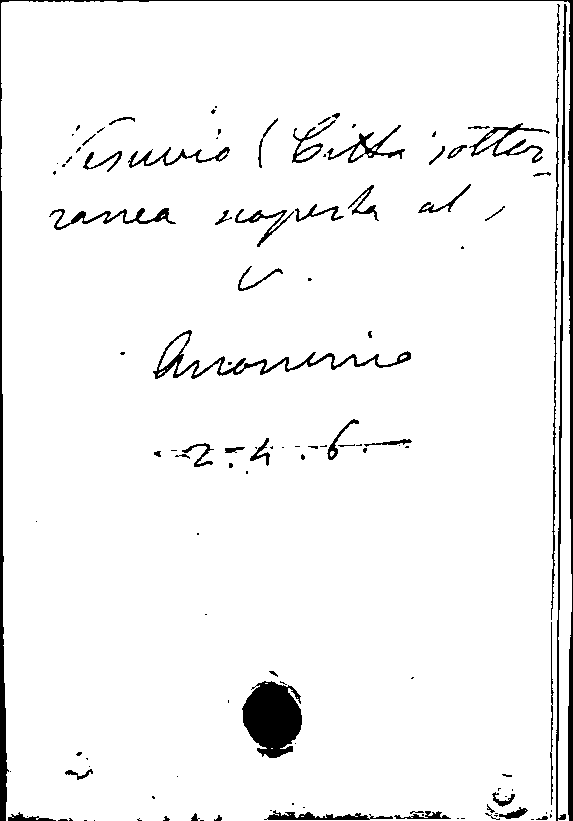 Vesuvio (Città sotter-
ranea scoperta al,
v.
Anonimo
2.4.6.